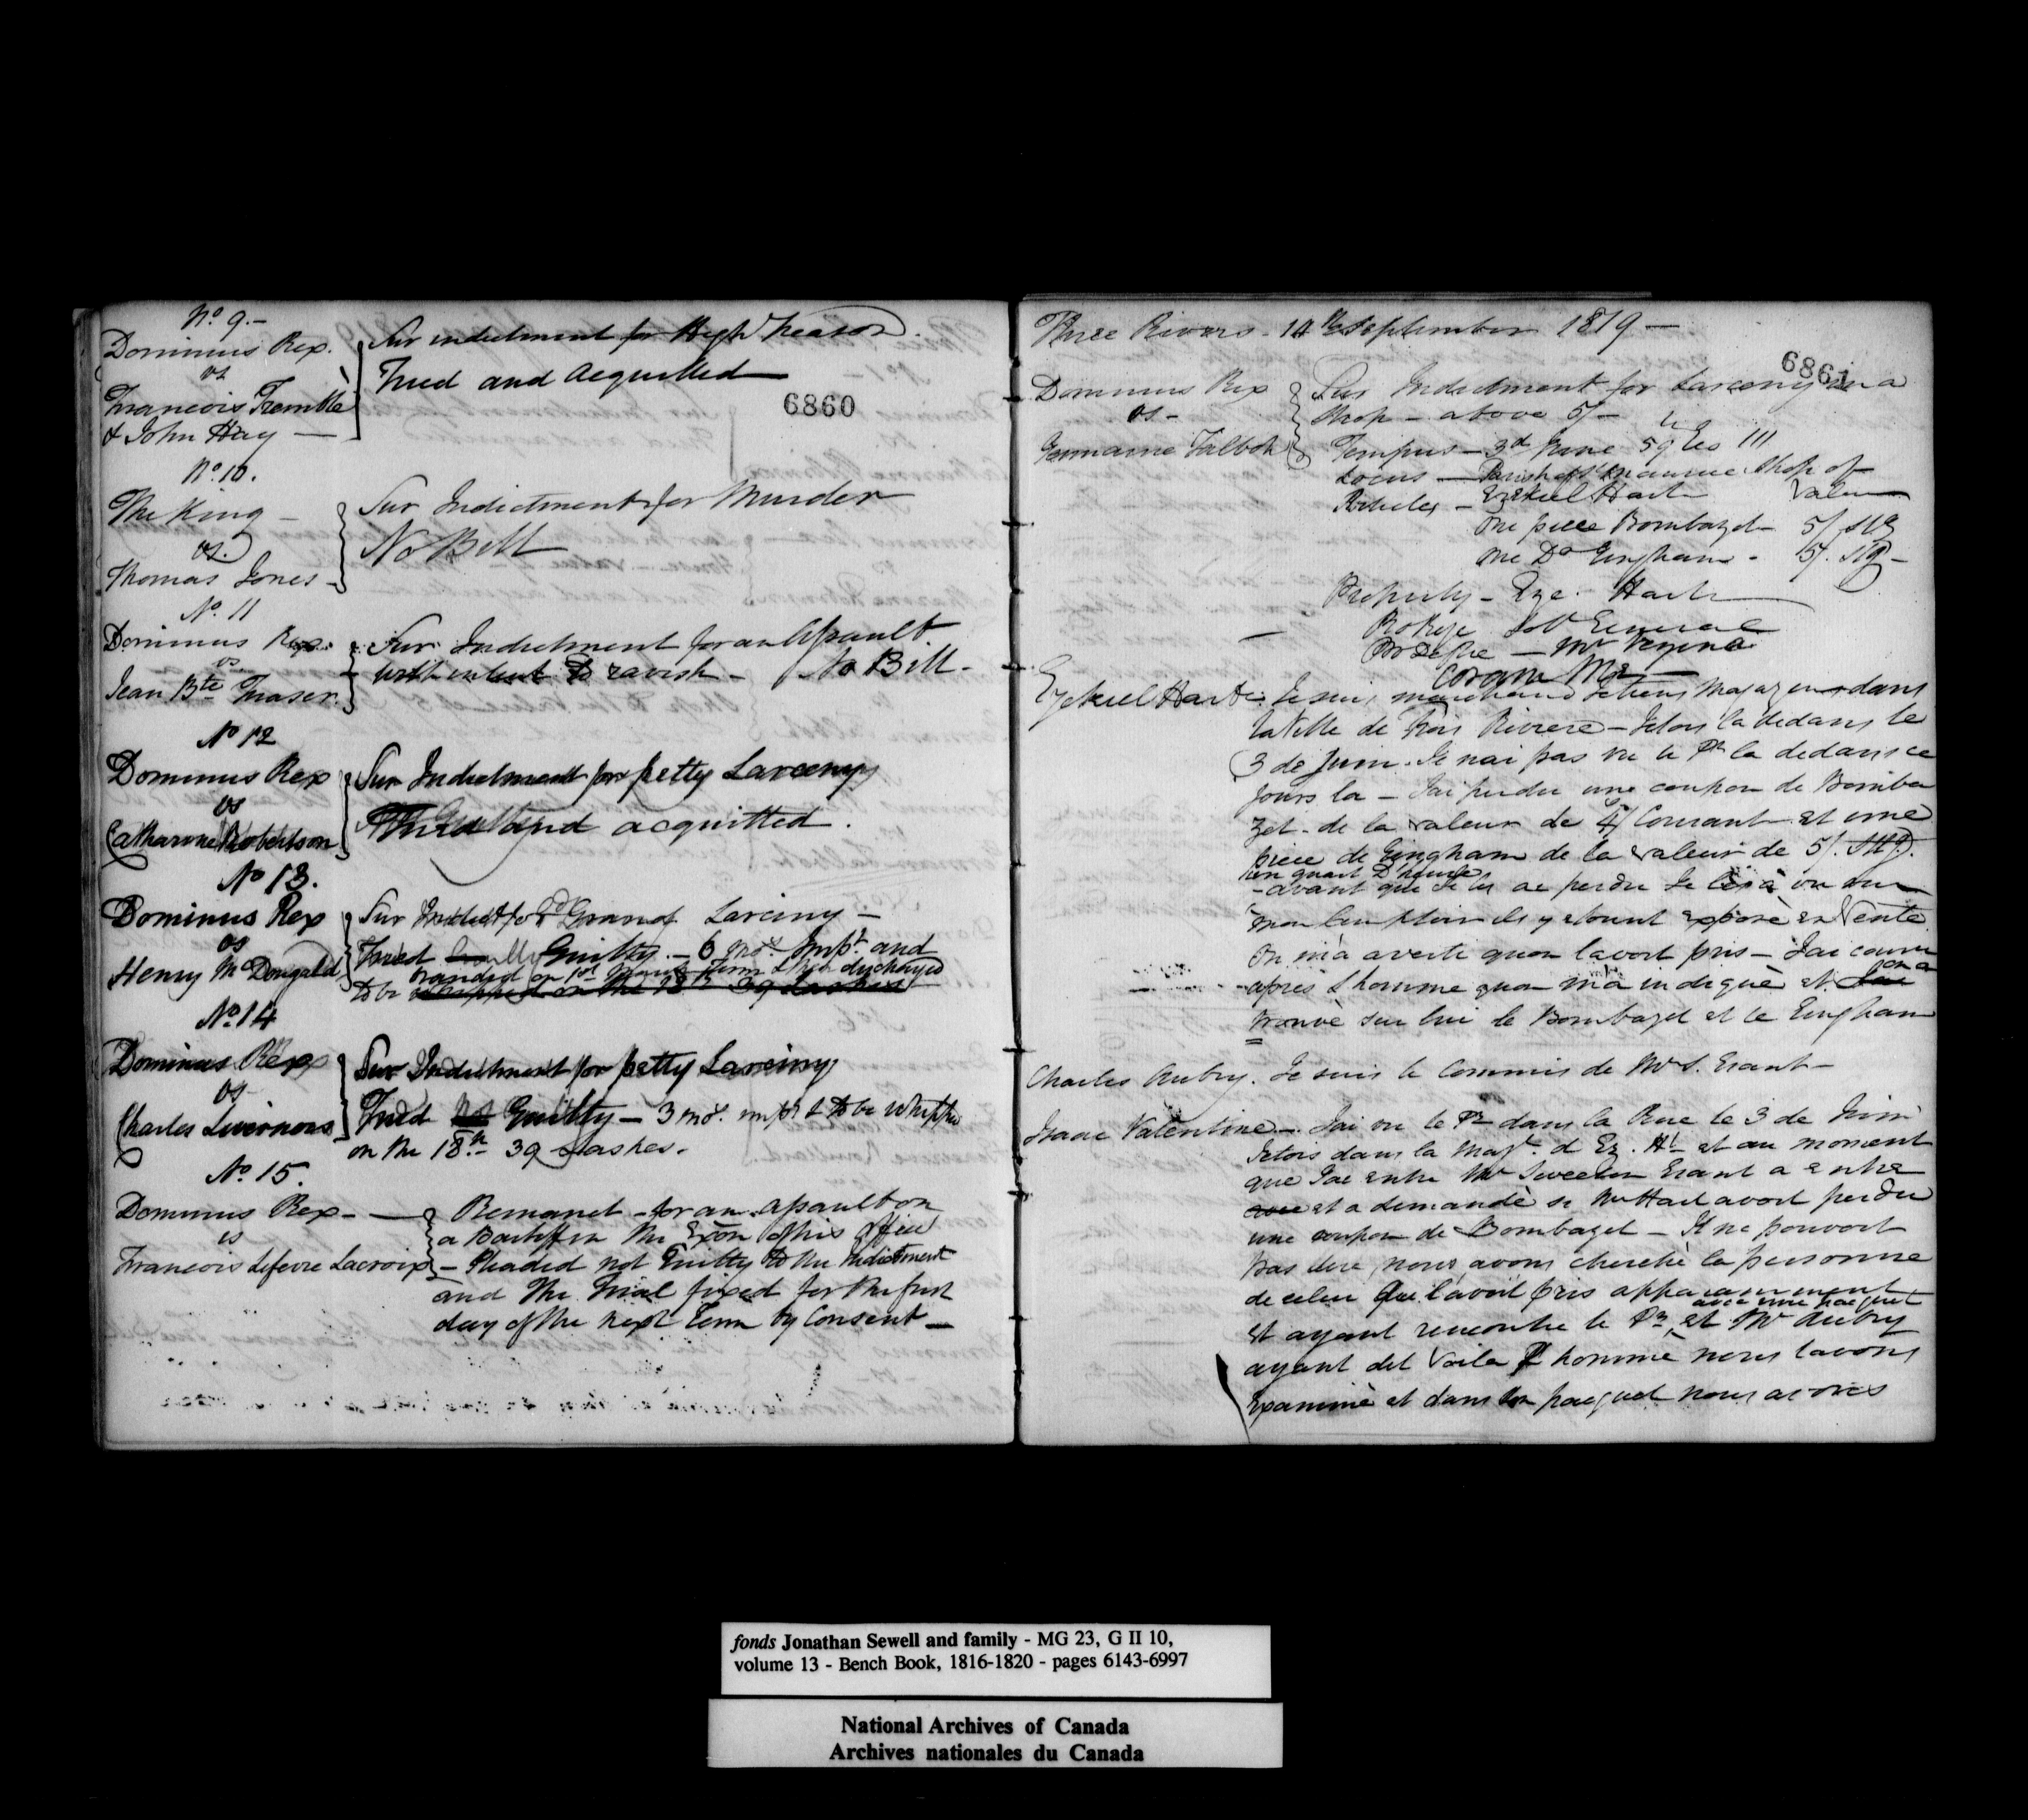 No. 9.-
Dominus Rex.
vs
Francois Tremble
& John Hay —
Sur indictment for High Treason.
Tried and acquitted —
6860
No. 10.
The King -
vs.
Thomas Jones -
Sur Indictment for Murder
No Bill
No. 11
Dominus Rex.
vs
Jean Bte Fraser.
Sur Indictment for an assault
with intent to ravish - No Bill -
No 12
Dominus Rex
vs
Catharine Robertson
Sur Indictment for petty Larceny
Tried and acquitted.
No 13.
Dominus Rex
vs
Henry McDougald
Sur Indict for Grand Larceny -
Tried Guilty - 6 mos. Impt. and
branded on 1st March Term & then discharged
to be whipped on the 18th 39 Lashes
No. 14
Dominus Rex
vs
Charles Livernois
Sur Indictment for petty Larceny
Tried Not Guilty - 3 mos. impt & to be whipped
on the 18th 39 Lashes.
No. 15.
Dominus Rex -
vs
Francois Lefevre Lacroix
Remanet - for an assault on
a Bailiff in the Exon of his office
- Pleaded not Guilty to the Indictment
and the Trial fixed for the first
day of the next Term by Consent -
Three Rivers - 14th September 1819 -
6861
Dominus Rex
vs -
Germaine Talbot
Sur Indictment for Larceny in a
Shop - above 5/-
Tempus - 3d June 59 Geo III
Locus - Parish of Shop of
Ezekiel Hart
Articles - Value
one piece Bombazet - 5/ Stg
one Do Gingham - 5/. Stg -
Property - Eze. Hart
Pro Rege Solr General
Pro Defte - Mr Vezina
Coram Me
Ezekiel Hart. Je suis marchand Je tiens Magazen dans
la Ville de Trois Riviere - Jetois la dedans le
3 de Juin. Je nai pas vu le Pr la dedans ce
jours la - Jai perdu une coupon de Bomba
zet - de la valeur de 4/ Courant et une
piece de Gingham de la valeur de 5/. Stg.
un quart D'heure
- avant que Je les ai perdu Je les a vu sur
mon Comptoir ils y etoient exposé en Vente
On m'a averti quon lavoit pris - Jai couru
après l'homme quon m'a indiqué et Jai
on a
trouvé sur lui le Bombazet et le Gingham
Charles Aubry. Je suis le Commis de Mr S. Grant -
Isaac Valentine - Jai vu le Pr dans la Rue le 3 de Juin
Jetois dans la Magn. d Ez. Ht et au moment
que Jai entre Mr Grant a entre
et a demandé si Mr Hart avoit perdu
une coupon de Bombazet - Il ne pouvoit
pas dire nous avons cherché la personne
de celui qui l'avoit pris apparamment
avec une pacquet
et ayant rencontre le Pr et Mr Aubry
ayant dit Voila l'homme nous lavons
Examiné et dans son pacquet nous avons
fonds Jonathan Sewell and family - MG 23, G II 10,
volume 13 - Bench Book, 1816-1820 - pages 6143-6997
National Archives of Canada
Archives nationales du Canada